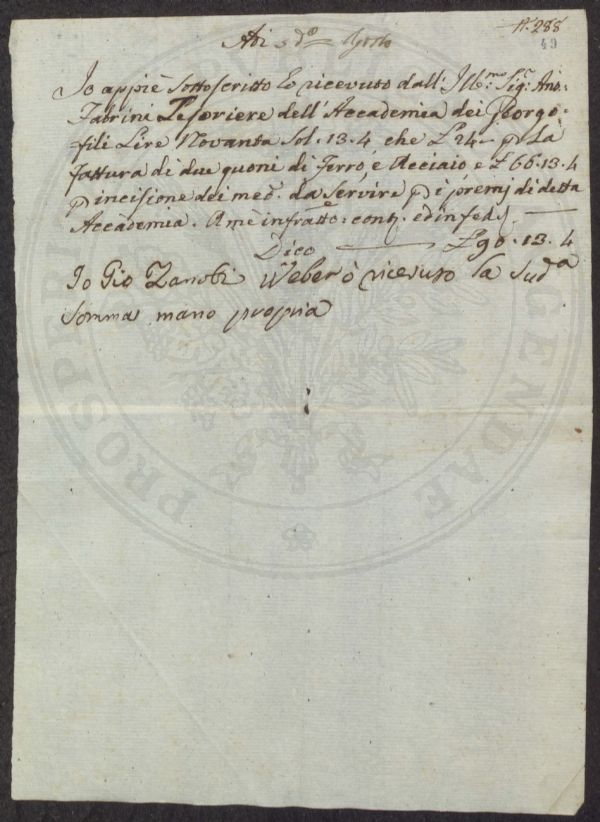 N. 288
49
Adi d.º Agosto
Io appiè sottoscritto ho ricevuto dall: Ill.mo Sig.r Anto:
Fabrini Tesoriere dell'Accademia dei Georgo=
fili Lire Novanta Sol. 13. 4, che £ 24 — p la
fattura di due quoni di Ferro, e Acciaio e £ 66. 13. 4
p incisione dei med. da servire p i premj di detta
Accademia. A me infratto: cont.
Dico £ 90. 13. 4
Io Gio Zanobi Weber ò ricevuto la sud.a
somma mano propria
PROSPE GENDAE